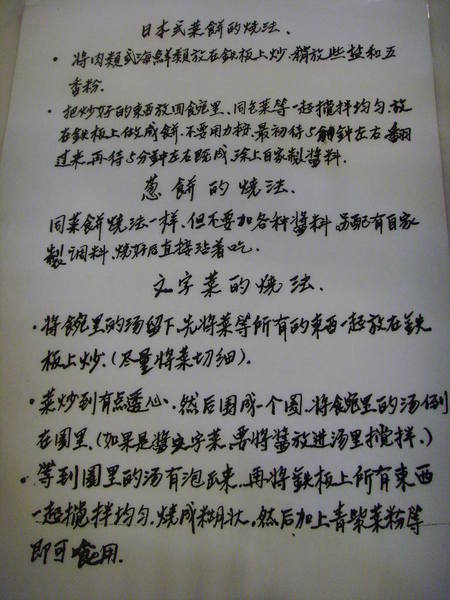 日本式菜餅的燒法.
· 將肉類或海鮮類放在鉄板上炒.稍放些盐和五
香粉.
· 把炒好的東西放回食碗里、同包菜等一起攪拌均匀.放
在鉄板上做成餅.不要用力按.最初待5分鈡左右翻
过来.再待5分鈡左右既成.涂上自家製醬料.
葱餅的燒法.
同菜餅燒法一样.但不要加各种醬料.另配有自家
製調料.燒好后直接沾着吃.
文字菜的燒法.
· 將食碗里的汤留下.先将菜等所有的東西一起放在鉄
板上炒.(尽量將菜切细).
· 菜炒到有点透心.然后围成一个圆.将食碗里的汤倒
在圆里.(如果是醬文字菜.要將醬放進汤里攪拌.)
· 等到圆里的汤有泡出来.再将鉄板上所有東西
一起攪拌均匀.燒成糊状.然后加上青柴菜粉等
即可食用.